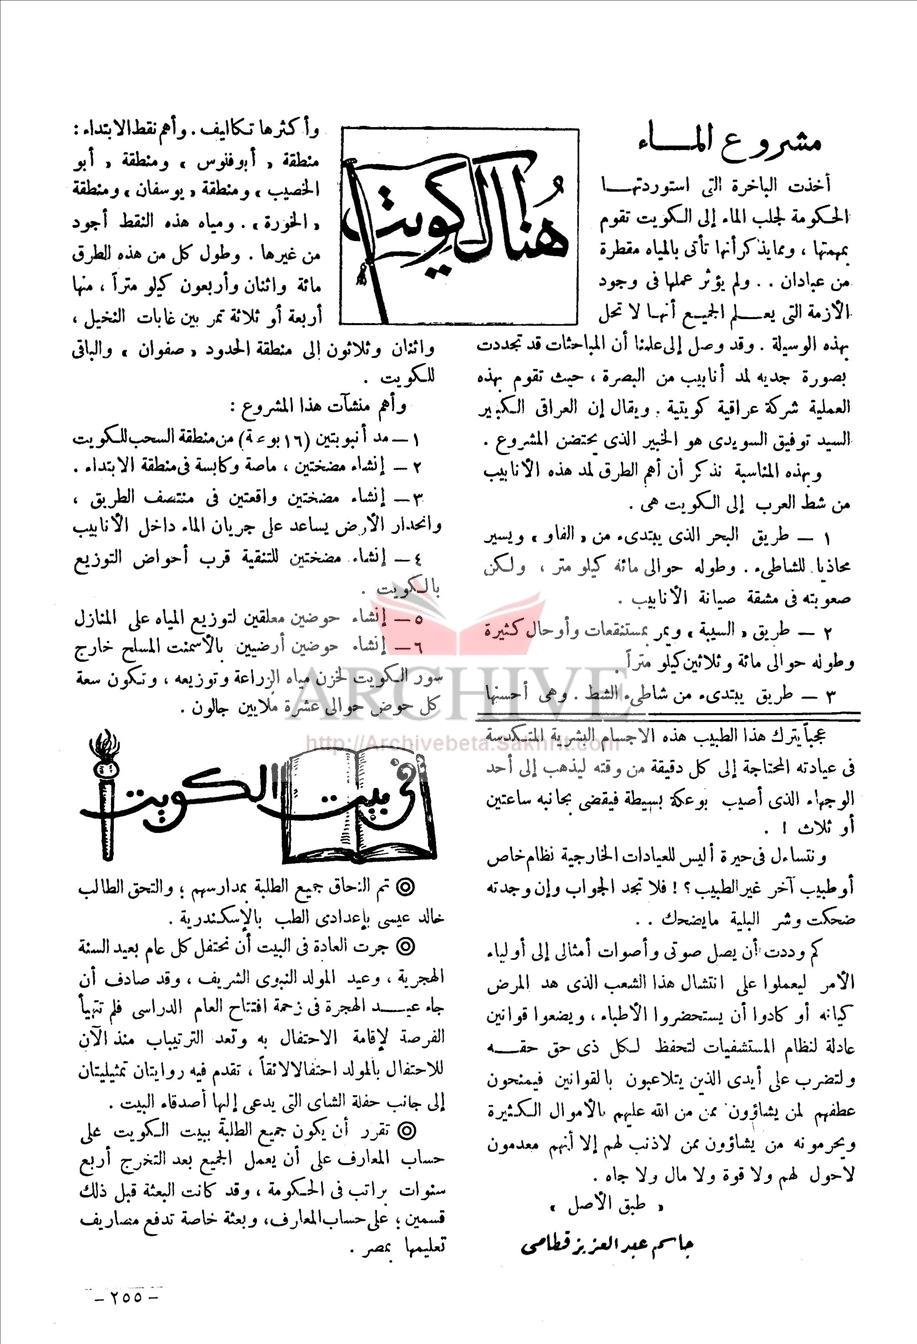 هنا الكويت
مشروع المـــاء
أخذت الباخرة التى استوردتهـــا
الحكومة لجلب الماء إلى الكويت تقوم
بمهمتها ، ومما يذكر أنها تأتى بالمياه مقطرة
من عبادان . . ولم يؤثر عملها فى وجود
الأزمة التى يعــلم الجميع أنهــا لا تحل
بهذه الوسيلة . وقد وصل إلى علمنا أن المباحثات قد تجددت
بصورة جديه لمد أنابيب من البصرة ، حيث تقوم بهذه
العملية شركة عراقية كويتية . ويقال إن العراقى الكبير
السيد توفيق السويدى هو الخبير الذى يحتضن المشروع .
وبهذه المناسبة نذكر أن أهم الطرق لمد هذه الأنابيب
من شط العرب إلى الكويت هى .
١ — طريق البحر الذى يبتدىء من « الفاو » ويسير
محاذيا للشاطىء . وطوله حوالى مائة كيلو متر ، ولكن
صعوبته فى مشقة صيانة الأنابيب .
٢ — طريق « السيبة » ويمر بمستنقعات وأوحال كثيرة
وطوله حوالى مائة وثلاثين كيلو متراً .
٣ — طريق يبتدىء من شاطىء الشط . وهى أحسنها
وأكثرها تكاليف . وأهم نقط الابتداء :
منطقة « أبوفلوس » ومنطقة « أبو
الخصيب » ومنطقة « يوسفان » ومنطقة
« الخورة » . ومياه هذه النقط أجود
من غيرها . وطول كل من هذه الطرق
مائة واثنان وأربعون كيلو متراً ، منها
أربعة أو ثلاثة تمر بين غابات النخيل ،
واثنان وثلاثون إلى منطقة الحدود « صفوان » والباقى
للكويت .
وأهم منشآت هذا المشروع :
١ — مد أنبوبتين (١٦ بوصة) من منطقة السحب للكويت
٢ — إنشاء مضختين ، ماصة وكابسة فى منطقة الابتداء .
٣ — إنشاء مضختين واقعتين فى منتصف الطريق ،
وانحدار الأرض يساعد على جريان الماء داخل الأنابيب
٤ — إنشاء مضختين للتنقية قرب أحواض التوزيع
بالكويت .
٥ — إنشاء حوضين معلقين لتوزيع المياه على المنازل
٦ — إنشاء حوضين أرضيين بالأسمنت المسلح خارج
سور الكويت لخزن مياه الزراعة وتوزيعه ، وتكون سعة
كل حوض حوالى عشرة ملايين جالون .
عجباً يترك هذا الطبيب هذه الاجسام البشرية المتكدسة
فى عيادته المحتاجة إلى كل دقيقة من وقته ليذهب إلى أحد
الوجهاء الذى أصيب بوعكة بسيطة فيقضى بجانبه ساعتين
أو ثلاث ! .
ونتساءل فى حيرة أليس للعيادات الخارجية نظام خاص
أو طبيب آخر غير الطبيب ؟ ! فلا تجد الجواب وإن وجدته
ضحكت وشر البلية مايضحك . .
كم وددت أن يصل صوتى وأصوات أمثالى إلى أولياء
الأمر ليعملوا على انتشال هذا الشعب الذى هد المرض
كيانه أو كادوا أن يستحضروا الأطباء ، ويضعوا قوانين
عادلة لنظام المستشفيات لتحفظ لكل ذى حق حقـــه
ولتضرب على أيدى الذين يتلاعبون بالقوانين فيمنحون
عطفهم لمن يشاؤون ممن من الله عليهم بالأموال الكثيرة
ويحرمونه من يشاؤون ممن لاذنب لهم إلا أنهم معدمون
لاحول لهم ولا قوة ولا مال ولا جاه .
« طبق الأصل »
جاسم عبد العزيز قطامى
فى بيت الكويت
◎ تم التحاق جميع الطلبة بمدارسهم ؛ والتحق الطالب
خالد عيسى بإعدادى الطب بالإسكندرية .
◎ جرت العادة فى البيت أن نحتفل كل عام بعيد السنة
الهجرية ، وعيد المولد النبوى الشريف ، وقد صادف أن
جاء عيــد الهجرة فى زحمة افتتاح العام الدراسى فلم تتهيأ
الفرصة لإقامة الاحتفال به وتعد الترتيبات منذ الآن
للاحتفال بالمولد احتفالا لائقاً ، تقدم فيه روايتان تمثيليتان
إلى جانب حفلة الشاى التى يدعى إليها أصدقاء البيت .
◎ تقرر أن يكون جميع الطلبة ببيت الكويت على
حساب المعارف على أن يعمل الجميع بعد التخرج أربع
سنوات براتب فى الحكومة ، وقد كانت البعثة قبل ذلك
قسمين ؛ على حساب المعارف ، وبعثة خاصة تدفع مصاريف
تعليمها بمصر .
— ٢٥٥ —
ARCHIVE
http://Archivebeta.Sakhrit.com